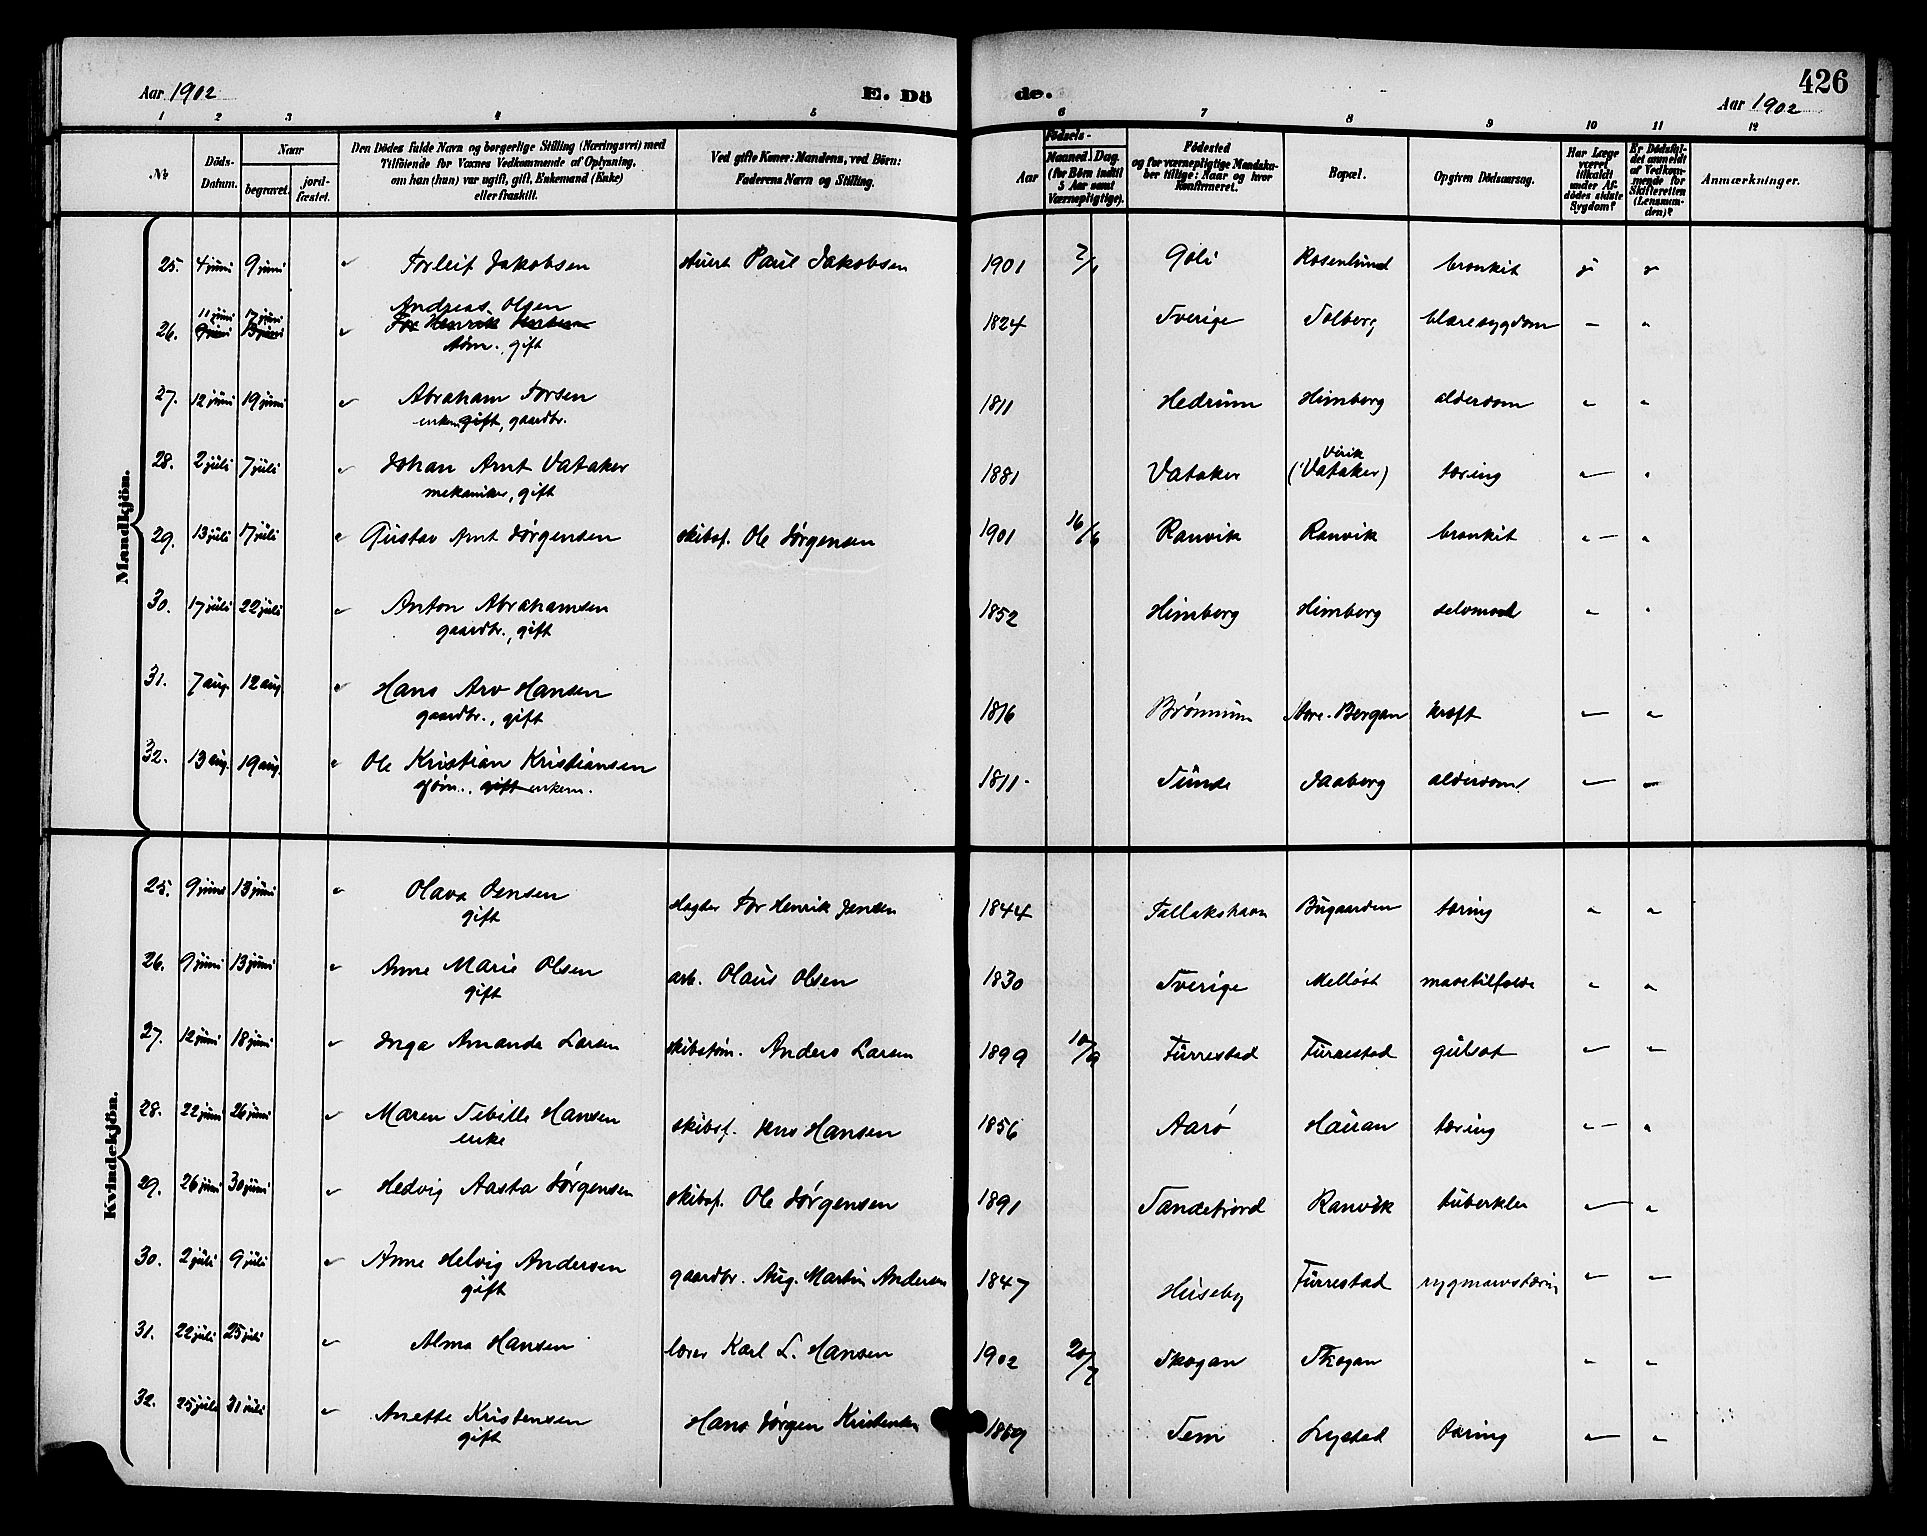 426
Aar 1902
E. Dö
de.
Aar 1902
1 2 3 4 5 6 7 8 9 10 11 12
No
Döds-Datum.
Naar
begravet.
jord-fæstet.
Den Dödes fulde Navn og borgerlige Stilling (Næringsvei) med
Tilföiende for Voxnes Vedkommende af Oplysning,
om han (hun) var ugift, gift, Enkemand (Enke)
eller fraskilt.
Ved gifte Koner: Mandens, ved Börn:
Faderens Navn og Stilling.
Födsels-
Aar
Maaned. Dag.
(for Börn indtil
5 Aar samt
Værnepligtige).
Födested
og for værnepligtige Mandska-
ber tillige: Naar og hvor
Konfirmeret.
Bopæl.
Opgiven Dödsaarsag.
Har Læge
været
tilkaldt
under Af-
dödes sidste
Sygdom?
Er Dödsfal-
det anmeldt
af Vedkom-
mende for
Skifteretten
(Lensman-
den)?
Anmærkninger.
Mandkjön.
25. 4 juni 9 juni " Torleif Jakobsen Paul Jakobsen 1901 2/1 Goli Rosenlund bronkit
11 juni 17 juni Andreas Olsen
26. 9 juni 13 juni " Tor Henrik Jensen 1824 Sverige Solberg blæresygdom - "
tøm., gift
27. 12 juni 19 juni " Abraham Torsen 1811 Hedrum Himberg alderdom " "
enkem gift, gaardbr.
Virik
28. 2 juli 7 juli " Johan Arnt Vataker 1881 Vataker (Vataker) tæring " "
mekaniker, gift
29. 13 juli 17 juli " Gustav Arnt Jørgensen skibsf. Ole Jørgensen 1901 16/6 Ranvik Ranvik bronkit " "
30. 17 juli 22 juli " Anton Abrahamsen 1852 Himberg Himberg selvmord " "
gaardbr., gift
31. 7 aug. 12 aug " Hans Arv Hansen 1816 Brønnum Store-Bergan kræft " "
gaardbr., gift
32. 13 aug. 19 aug. " Ole Kristian Kristiansen 1811 Sunde Jaaberg alderdom " "
gift enkem.
Kvindekjön.
25. 9 juni 13 juni " Olava Jensen Tor Henrik Jensen 1844 Tallakshavn Bugaarden tæring " "
gift
26. 9 juni 13 juni " Anne Marie Olsen arb. Olaus Olsen 1830 Sverige Melløst mavetilfælde " "
gift
27. 12 juni 18 juni " Inga Amanda Larsen skibstøm. Anders Larsen 1899 10/9 Furrestad Furrestad gulsot " "
28. 22 juni 26 juni " Maren Sibille Hansen skibsf. Jens Hansen 1856 Aarø Hauan tæring " "
enke
29. 26 juni 30 juni " Hedvig Aasta Jørgensen skibsf. Ole Jørgensen 1891 Sandefjord Ranvik tuberkler " "
30. 2 juli 9 juli " Anne Helvig Andersen gaardbr. Aug. Martin Andersen 1847 Huseby Furrestad rygmarvstærin " "
gift
31. 22 juli 25 juli " Alma Hansen lærer Karl L. Hansen 1902 20/7 Skogan Skogan " "
32. 25 juli 31 juli " Anette Kristensen Hans Jørgen Kristensen 1869 Sem Lystad tæring " "
gift